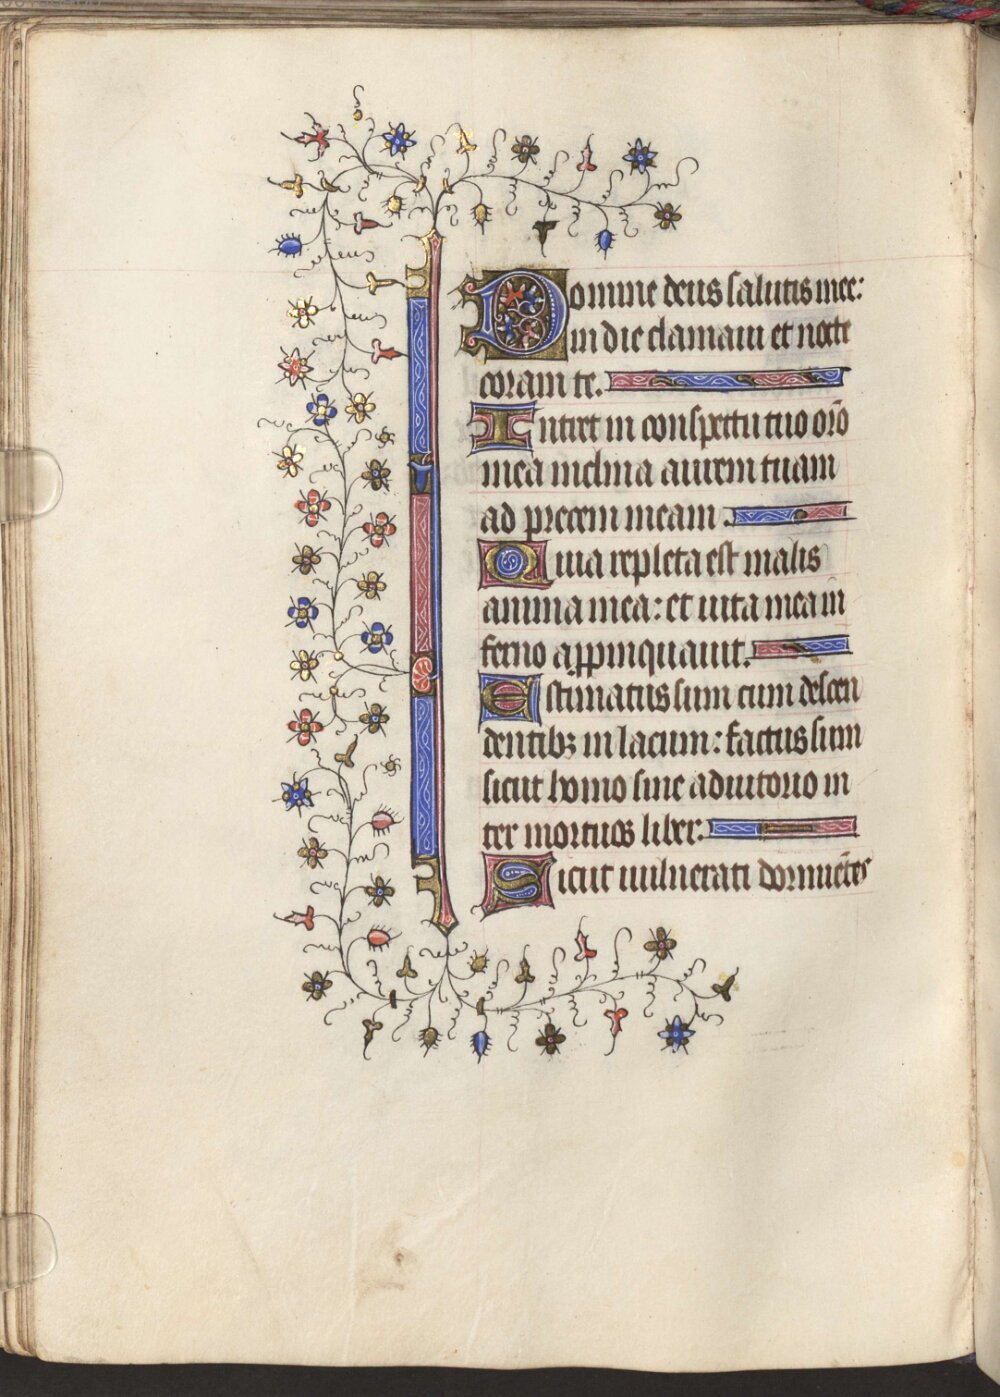 Domine deus salutis mee:
in die clamaui et nocte
coram te.
Intret in conspectu tuo orõ
mea inclina aurem tuam
ad precem meam.
Quia repleta est malis
anima mea: et uita mea in
ferno appinquauit.
Estimatus sum cum descen
dentibꝫ in lacum: factus sum
sicut homo sine adiutorio in
ter mortuos liber:
Sicut uulnerati dormiẽtes